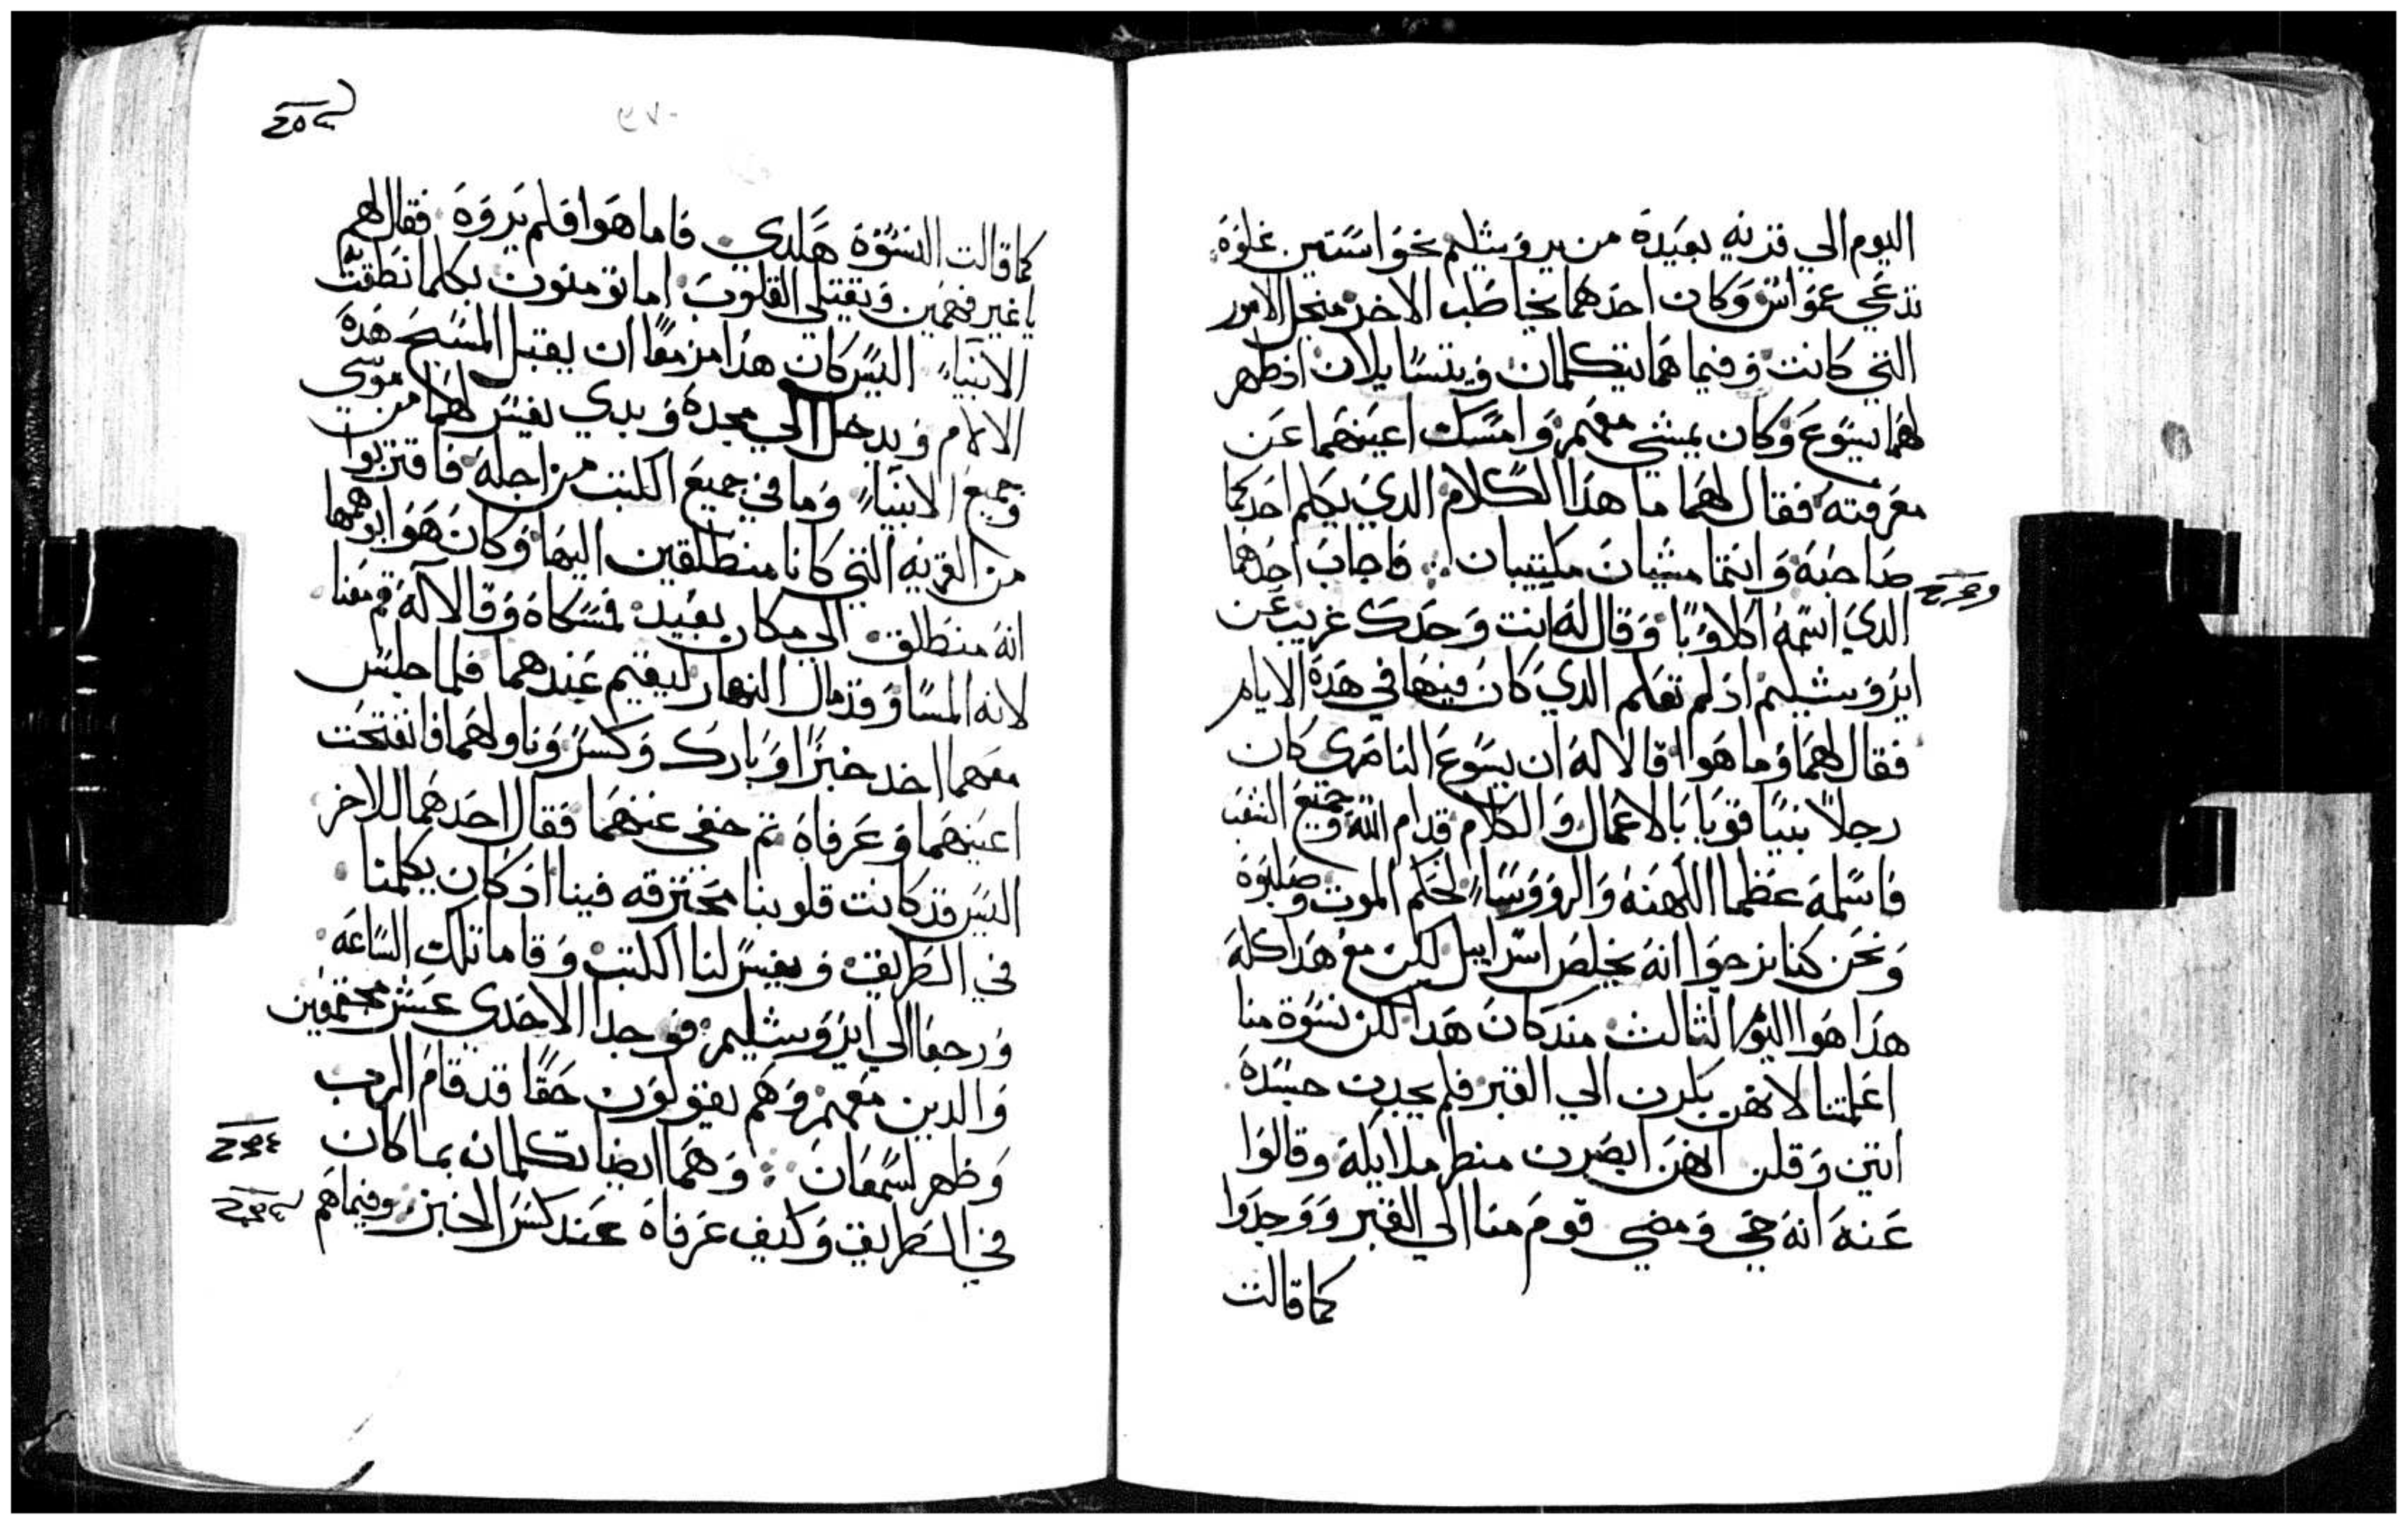 اليوم الي قريه بعيدة من يروشليم نحوا ستين غلوة
تدعي عمواس وكان احدهما يخاطب الاخر منجل الامور
التي كانت وفيما هما يتكلمان ويتسايلان اذ ظهر
لهما يسوع وكان يمشي معهم وامسك اعينهما عن
معرفته فقال لهما ما هذا الكلام الدي يكلم احدكما
صاحبه وانتما مشيان مكيتبان فاجاب احدهما
الدي اسمه اكلاوبا وقال له انت وحدك غريب عن
ايروشليم اذ لم تعلم الدي كان فيها في هدة الايام
فقال لهما وما هوا قالا له ان يسوع الناصري كان
رجلا نبيا قويا بالاعمال والكلام قدام الله وجميع الشعب
فاسلمه عظما الكهنه والرووساء لحكم الموت وصلبوة
ونحن كنا نرجوا انه يخلص اسراييل لكن مع هدا كله
هدا هوا اليوم الثالث مند كان هدا لكن نسوة منا
اعلمتنا لانهن بكرن الي القبر فلم يجدن جسدة
اتين وقلن انهن ابصرن منظر ملايكه وقالوا
عنه انه حي ومضي قوم منا الي القبر ووجدوا
كما قالت
كما قالت النسوة هكدي فاما هوا فلم يروة فقال لهم
يا غير فهمين وثقيلي القلوب اما تومنون بكلما نطقت به
الانبياء اليس كان هدا مزمعا ان يقبل المسيح هدة
الالام ويدخل الي مجدة وبدي يفسر لهما من موسي
وجميع الانبياء وما في جميع الكتب من اجله فاقتربوا
من القريه التي كانا منطلقين اليها وكان هوا يوهمهما
انه منطلق الي مكان بعيد فمسكاة وقالا له قم معنا
لانه المسا وقد مال النهار ليقيم عندهما فلما جلس
معهما اخد خبزا وبارك وكسر وناولهما فانفتحت
اعينهما وعرفاة تم خفي عنهما فقال احدهما للاخر
اليس قد كانت قلوبنا محترقه فينا اذ كان يكلمنا
في الطريق ويفسر لنا الكتب وقاما تلك الساعه
ورجعا الي ايروشليم فوجدا الاحدي عشر مجتمعين
والدين معهم وهم يقولون حقا قد قام الرب
وظهر لسمعان وهما ايضا تكلمان بما كان
في الطريق وكيف عرفاة عند كسر الخبز وفيما هم